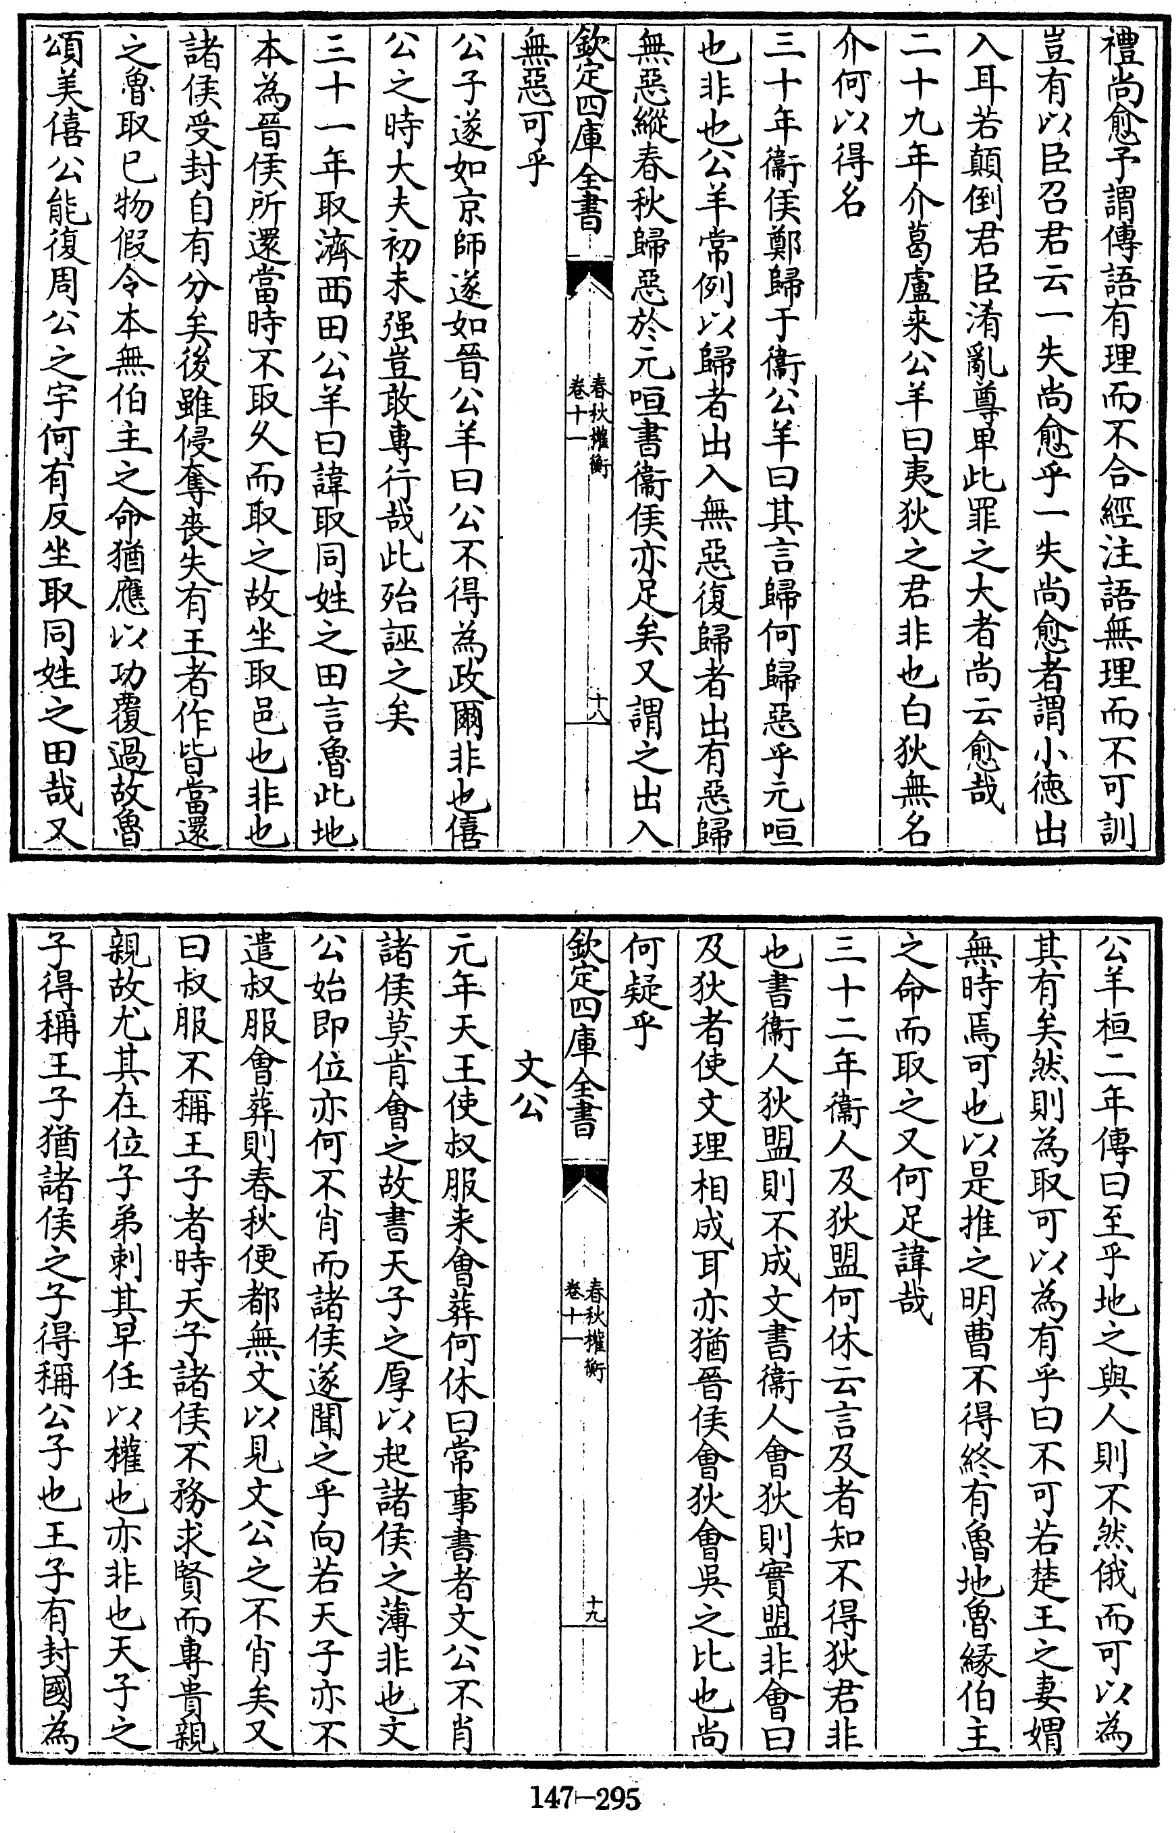 禮尚愈予謂傳語有理而不合經注語無理而不可訓
豈有以臣召君云一失尚愈乎一失尚愈者謂小徳出
入耳若顛倒君臣淆亂尊卑此罪之大者尚云愈哉
二十九年介葛盧来公羊曰夷狄之君非也白狄無名
介何以得名
三十年衞侯鄭歸于衞公羊曰其言歸何歸惡乎元咺
也非也公羊常例以歸者出入無惡復歸者出有惡歸
無惡縱春秋歸惡於元咺書衞侯亦足矣又謂之出入
欽定四庫全書
春秋權衡
卷十一
十八
無惡可乎
公子遂如京師遂如晉公羊曰公不得為政爾非也僖
公之時大夫初未强豈敢專行哉此殆誣之矣
三十一年取濟西田公羊曰諱取同姓之田言魯此地
本為晉侯所還當時不取久而取之故坐取邑也非也
諸侯受封自有分矣後雖侵奪喪失有王者作皆當還
之魯取已物假令本無伯主之命猶應以功覆過故魯
頌美僖公能復周公之宇何有反坐取同姓之田哉又
公羊桓二年傳曰至乎地之與人則不然俄而可以為
其有矣然則為取可以為有乎曰不可若楚王之妻媦
無時焉可也以是推之明曹不得終有魯地魯緣伯主
之命而取之又何足諱哉
三十二年衞人及狄盟何休云言及者知不得狄君非
也書衞人狄盟則不成文書衞人會狄則實盟非會曰
及狄者使文理相成耳亦猶晉侯會狄會吳之比也尚
何疑乎
欽定四庫全書
春秋權衡
卷十一
十九
文公
元年天王使叔服来會葬何休曰常事書者文公不肖
諸侯莫肯會之故書天子之厚以起諸侯之薄非也文
公始即位亦何不肖而諸侯遂聞之乎向若天子亦不
遣叔服會葬則春秋便都無文以見文公之不肖矣又
曰叔服不稱王子者時天子諸侯不務求賢而專貴親
親故尤其在位子弟刺其早任以權也亦非也天子之
子得稱王子猶諸侯之子得稱公子也王子有封國為
147-295